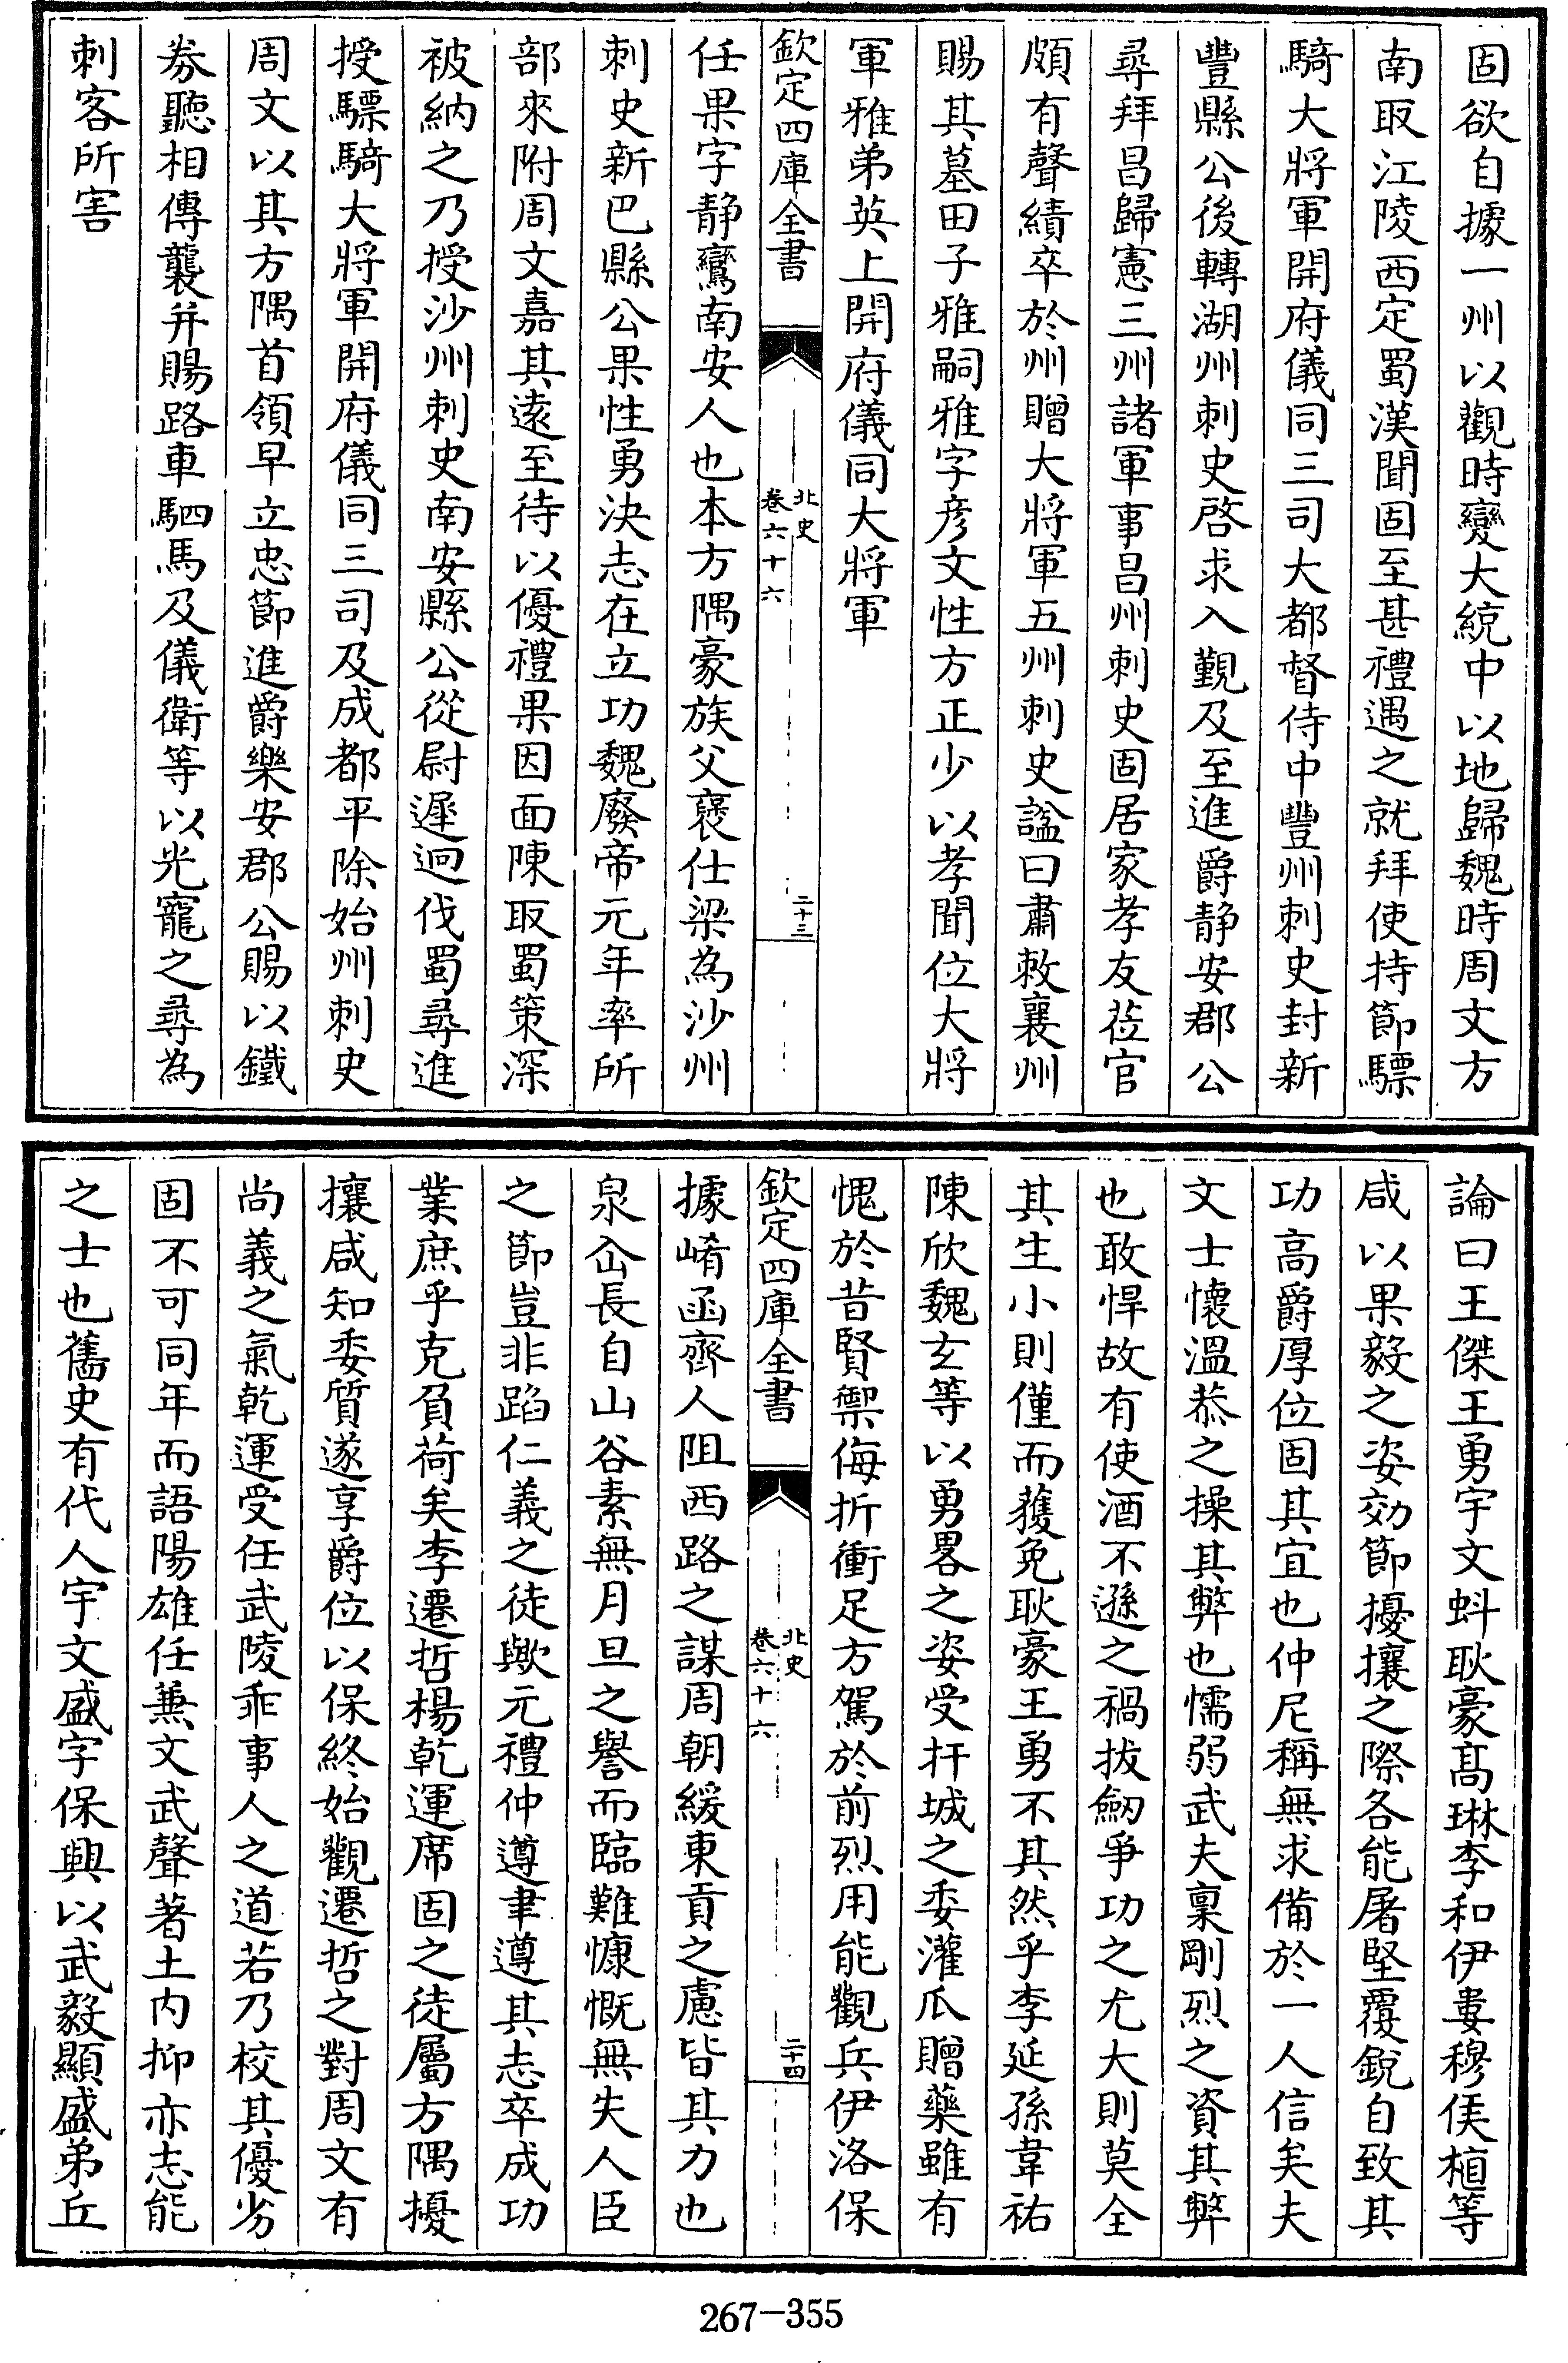 固欲自據一州以觀時變大統中以地歸魏時周文方
南取江陵西定蜀漢聞固至甚禮遇之就拜使持節驃
騎大將軍開府儀同三司大都督侍中豐州刺史封新
豐縣公後轉湖州刺史啓求入覲及至進爵靜安郡公
尋拜昌歸憲三州諸軍事昌州刺史固居家孝友莅官
頗有聲績卒於州贈大將軍五州刺史諡曰肅敕襄州
賜其墓田子雅嗣雅字彦文性方正少以孝聞位大將
軍雅弟英上開府儀同大將軍
欽定四庫全書
北史
卷六十六
二十三
任果字静鸞南安人也本方隅豪族父褒仕梁為沙州
刺史新巴縣公果性勇決志在立功魏廢帝元年率所
部來附周文嘉其遠至待以優禮果因面陳取蜀策深
被納之乃授沙州刺史南安縣公從尉遲迥伐蜀尋進
授驃騎大將軍開府儀同三司及成都平除始州刺史
周文以其方隅首領早立忠節進爵樂安郡公賜以鐵
券聽相傳襲并賜路車駟馬及儀衛等以光寵之尋為
刺客所害
論曰王傑王勇宇文虯耿豪髙琳李和伊婁穆侯植等
咸以果毅之姿効節擾攘之際各能屠堅覆鋭自致其
功高爵厚位固其宜也仲尼稱無求備於一人信矣夫
文士懷溫恭之操其弊也懦弱武夫稟剛烈之資其弊
也敢悍故有使酒不遜之禍拔劒爭功之尤大則莫全
其生小則僅而獲免耿豪王勇不其然乎李延孫韋祐
陳欣魏玄等以勇畧之姿受扞城之委灌瓜贈藥雖有
愧於昔賢禦侮折衝足方駕於前烈用能觀兵伊洛保
欽定四庫全書
北史
卷六十六
二十四
據崤函齊人阻西路之謀周朝緩東貢之慮皆其力也
泉仚長自山谷素無月旦之譽而臨難慷慨無失人臣
之節豈非蹈仁義之徒歟元禮仲遵聿遵其志卒成功
業庶乎克負荷矣李遷哲楊乾運席固之徒屬方隅擾
攘咸知委質遂享爵位以保終始觀遷哲之對周文有
尚義之氣乾運受任武陵乖事人之道若乃校其優劣
固不可同年而語陽雄任兼文武聲著土内抑亦志能
之士也舊史有代人宇文盛字保興以武毅顯盛弟丘
267-355